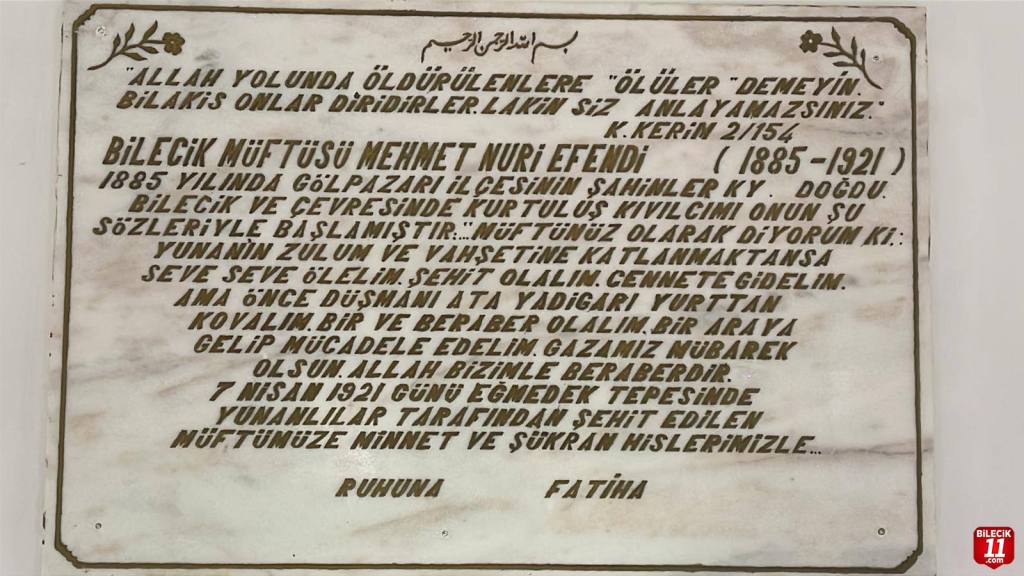 بسم الله الرحمن الرحيم
"ALLAH YOLUNDA ÖLDÜRÜLENLERE "ÖLÜLER" DEMEYİN.
BİLAKİS ONLAR DİRİDİRLER.LAKİN SİZ ANLAYAMAZSINIZ."
K.KERİM 2/154
BİLECİK MÜFTÜSÜ MEHMET NURİ EFENDİ (1885-1921)
1885 YILINDA GÖLPAZARI İLÇESİNİN ŞAHİNLER KY. DOĞDU.
BİLECİK VE ÇEVRESİNDE KURTULUŞ KIVILCIMI ONUN ŞU
SÖZLERİYLE BAŞLAMIŞTIR:..."MÜFTÜNÜZ OLARAK DİYORUM Kİ.:
YUNANIN ZULUM VE VAHŞETİNE KATLANMAKTANSA
SEVE SEVE ÖLELİM.ŞEHİT OLALIM.CENNETE GİDELİM.
AMA ÖNCE DÜŞMANI ATA YADİGARI YURTTAN
KOVALIM.BİR VE BERABER OLALIM.BİR ARAYA
GELİP MÜCADELE EDELİM.GAZAMIZ MÜBAREK
OLSUN.ALLAH BİZİMLE BERABERDİR.
7 NİSAN 1921 GÜNÜ EĞMEDEK TEPESİNDE
YUNANLILAR TARAFINDAN ŞEHİT EDİLEN
MÜFTÜMÜZE MİNNET VE ŞÜKRAN HİSLERİMİZLE...
RUHUNA FATİHA
BİLECİK
11
.com